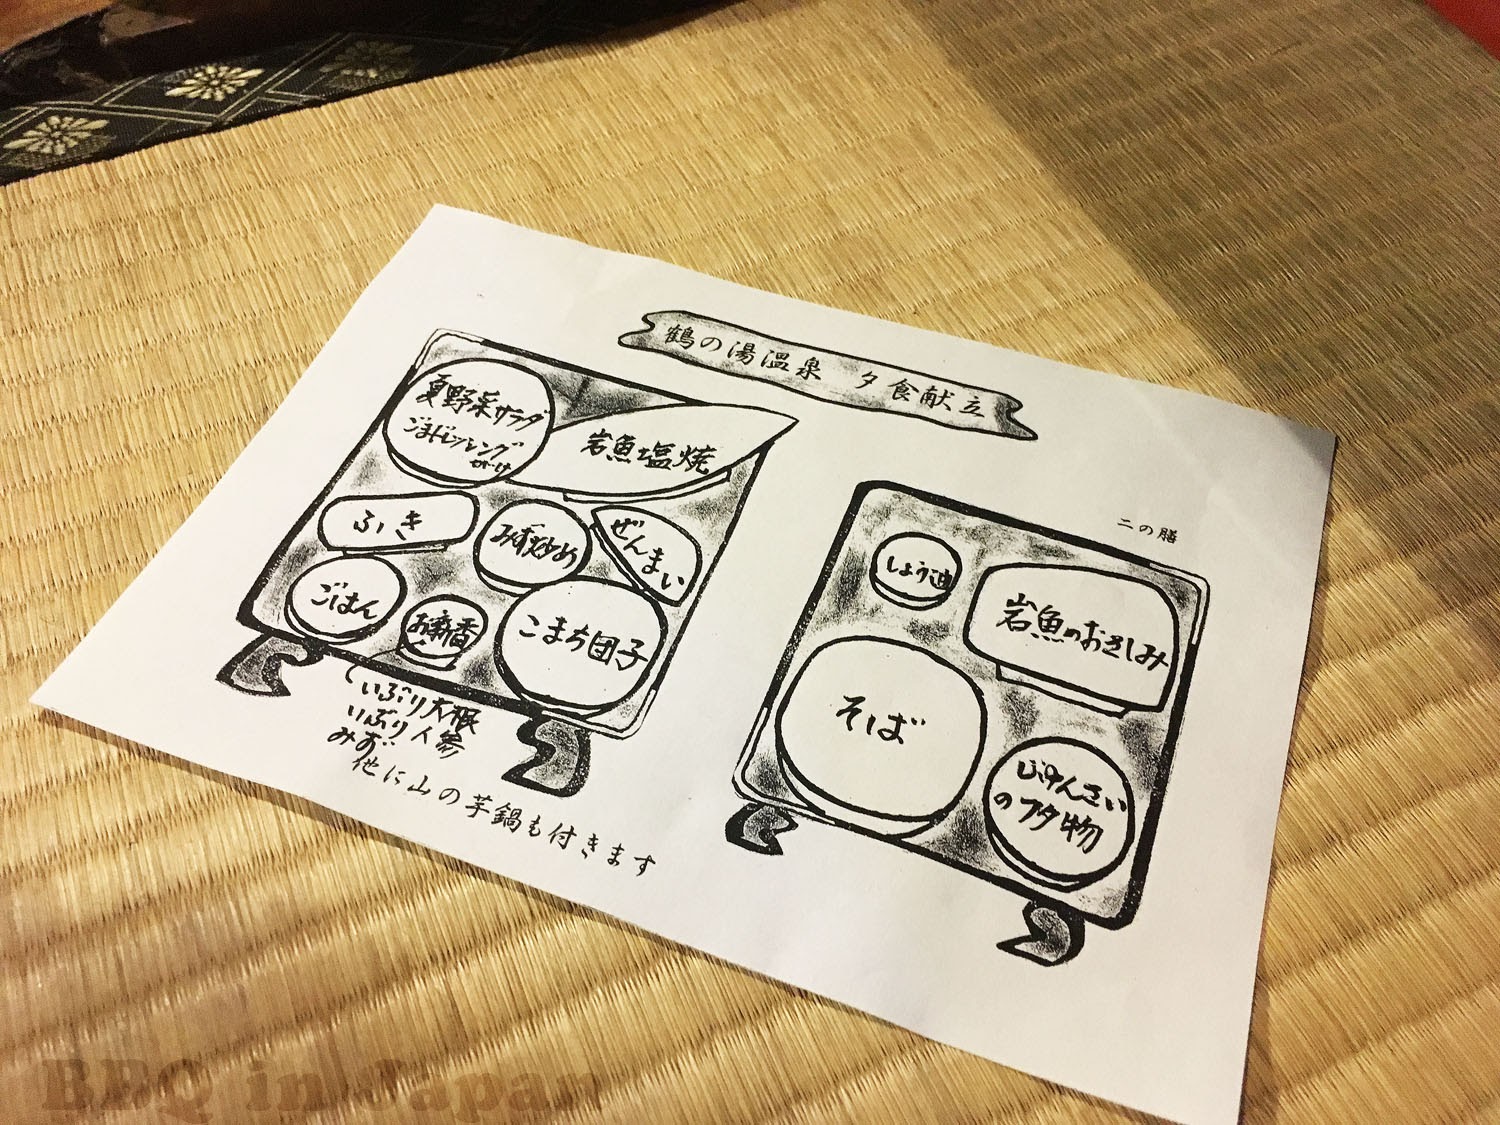 鶴の湯温泉 夕食献立
夏野菜サラダ
ごまドレッシング
がけ
岩魚塩焼
ふき
みず炒め
ぜんまい
ごはん
お新香
こまち団子
いぶり大根
いぶり人参
みず
他に山の芋鍋も付きます
二の膳
しょう油
岩魚のおさしみ
そば
じゅんさい
のフタ物
BBQ in Japan